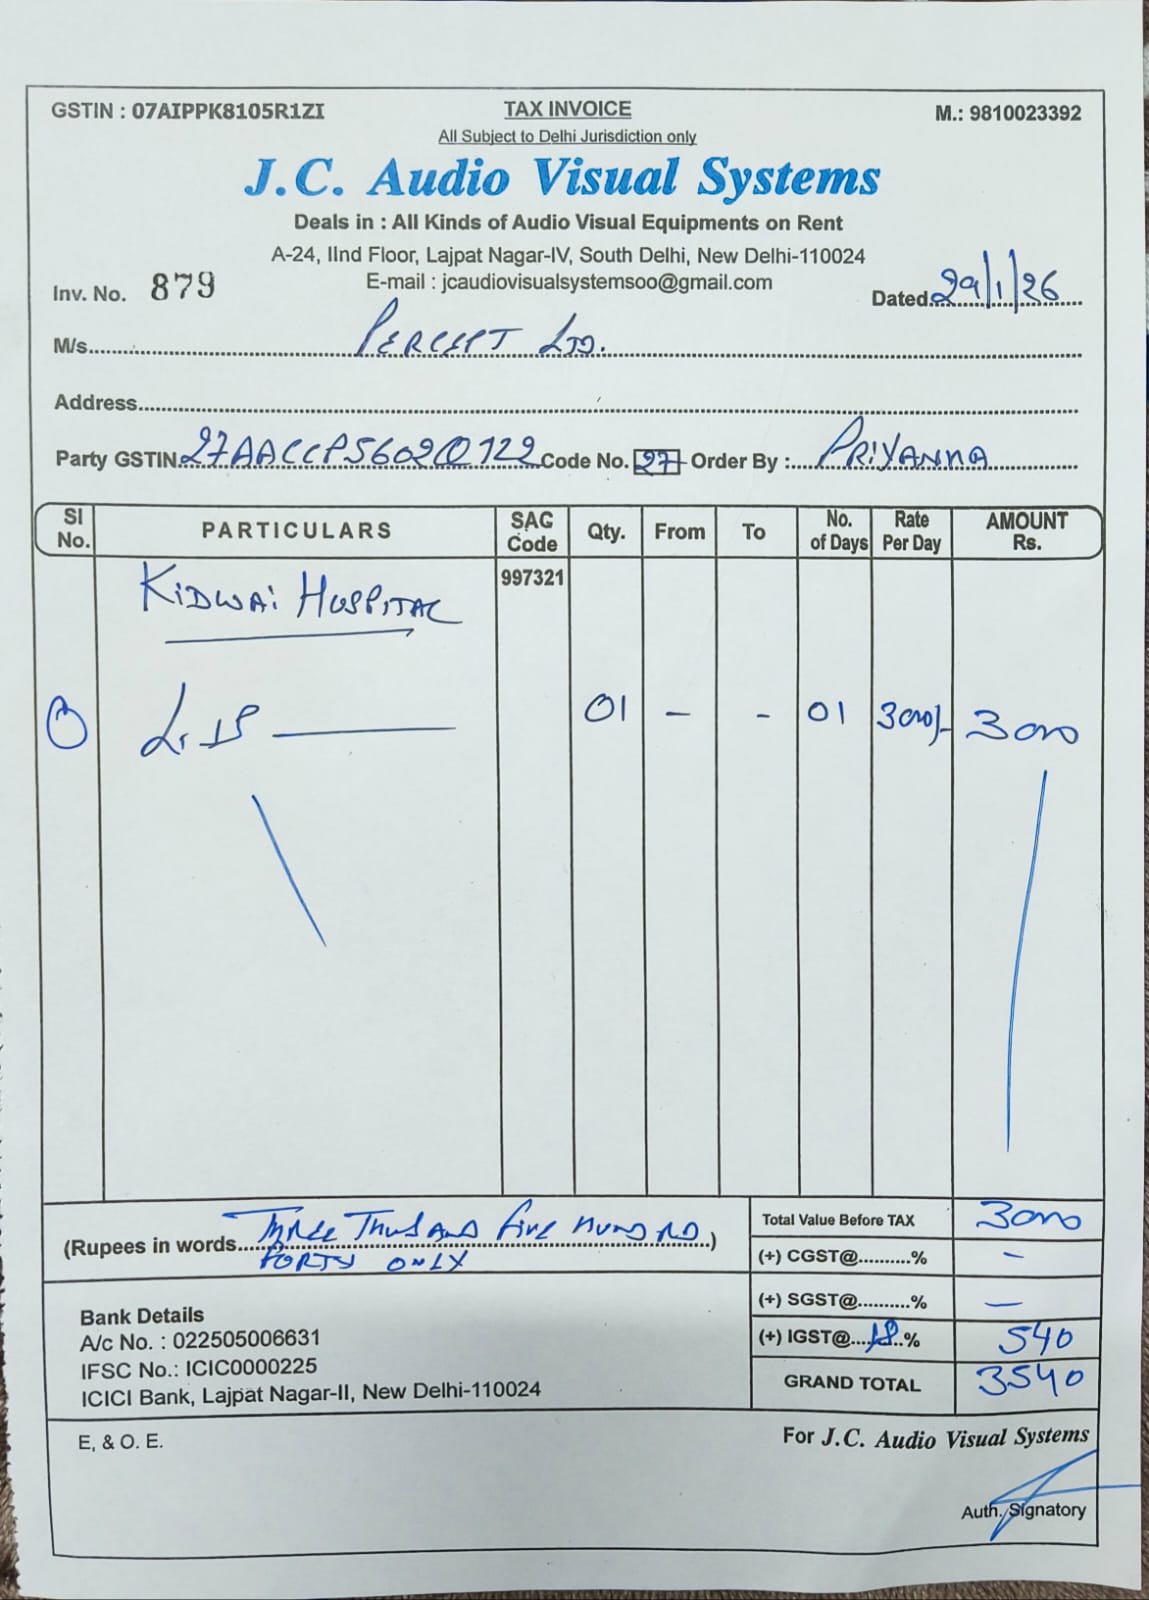 GSTIN : 07AIPPK8105R1ZI TAX INVOICE M.: 9810023392
All Subject to Delhi Jurisdiction only
J.C. Audio Visual Systems
Deals in : All Kinds of Audio Visual Equipments on Rent
A-24, IInd Floor, Lajpat Nagar-IV, South Delhi, New Delhi-110024
E-mail : jcaudiovisualsystemsoo@gmail.com
Inv. No. 879 Dated 29/1/26
M/s. PERCEPT LTD.
Address
Party GSTIN 27AACCP5602Q1Z2 Code No. 27 Order By : PRIYANKA
Sl No. PARTICULARS SAG Code Qty. From To No. of Days Rate Per Day AMOUNT Rs.
KIDWAI HOSPITAL 997321
01 - - 01 3000/- 3000
(Rupees in words THREE THOUSAND FIVE HUNDRED)
FORTY ONLY
Total Value Before TAX 3000
(+) CGST@..........% -
(+) SGST@..........% -
(+) IGST@....18..% 540
GRAND TOTAL 3540
Bank Details
A/c No. : 022505006631
IFSC No.: ICIC0000225
ICICI Bank, Lajpat Nagar-II, New Delhi-110024
E, & O. E. For J.C. Audio Visual Systems
Auth. Signatory